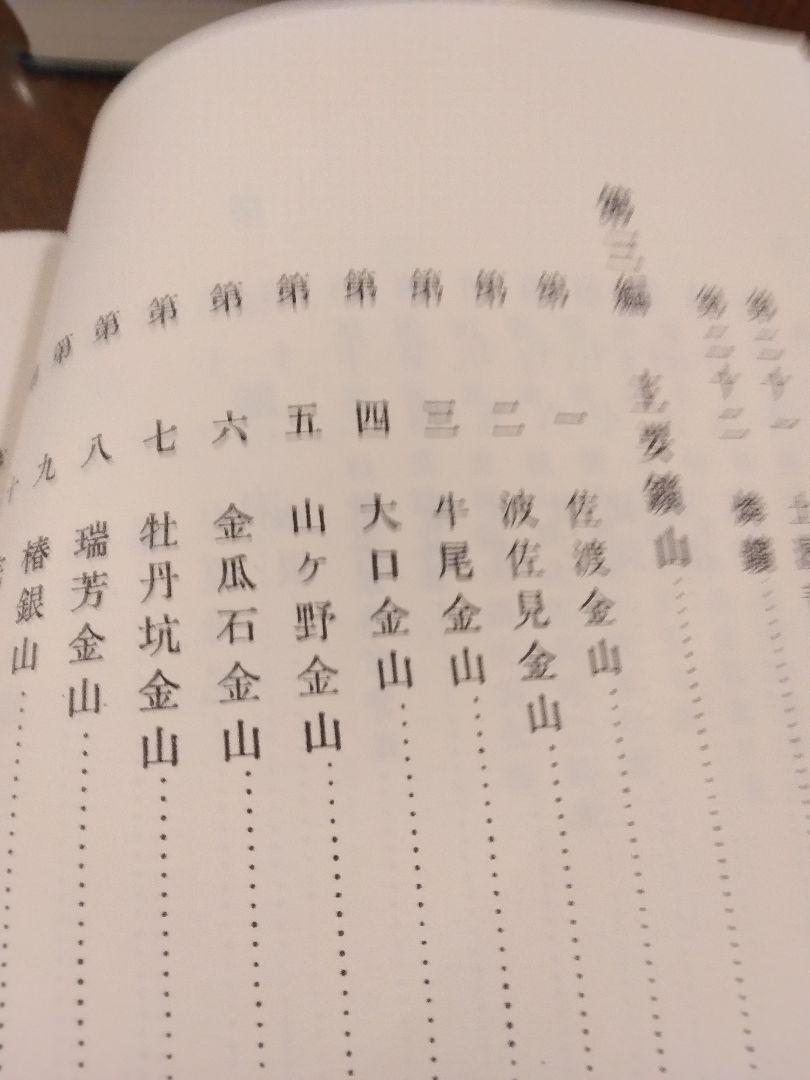 第二十一
第二十二
第三編 主要鑛山
第一 佐渡金山
第二 波佐見金山
第三 牛尾金山
第四 大口金山
第五 山ケ野金山
第六 金瓜石金山
第七 牡丹坑金山
第八 瑞芳金山
第九 椿銀山
十